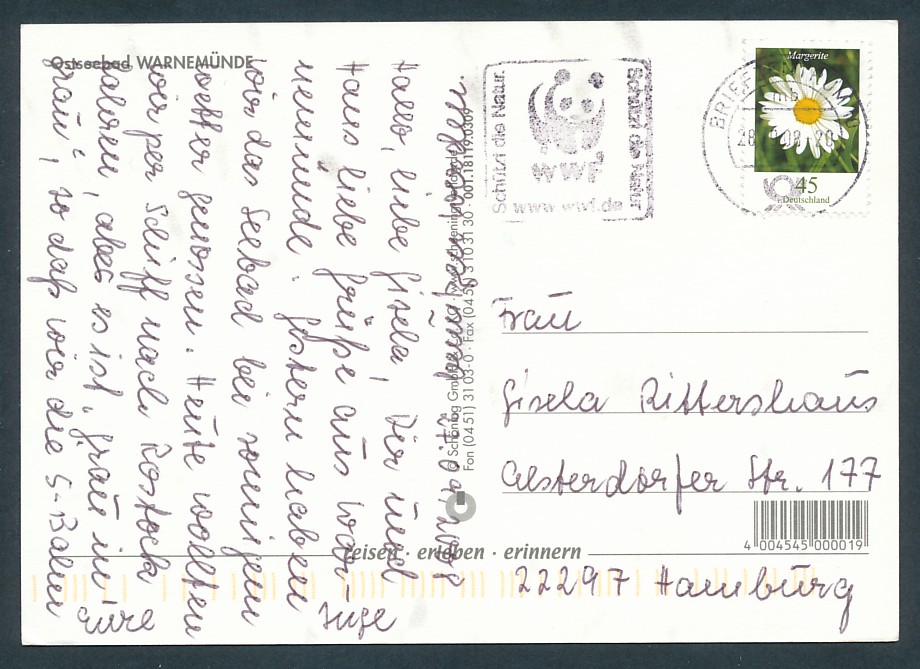 Ostseebad WARNEMÜNDE
Hallo, liebe Gisela! Dir und
Hans liebe Grüße aus War-
nemünde. Gestern haben
wir das Seebad bei sonnigem
Wetter genossen. Heute wollten
wir per Schiff nach Rostock
fahren, aber es ist "grau in
grau", so daß wir die S-Bahn
Eure Inge
© Schöning GmbH
Fon (0451) 31 03-0 · Fax (0451) 3103130 · 001.18119.0309
reisen · erleben · erinnern
Schützt die Natur
WWF
Schützt die Natur
www.wwf.de
BRIEF
Margerite
45
Deutschland
Frau
Gisela Rittershaus
Alsterdorfer Str. 177
4 004545 000019
22297 Hamburg